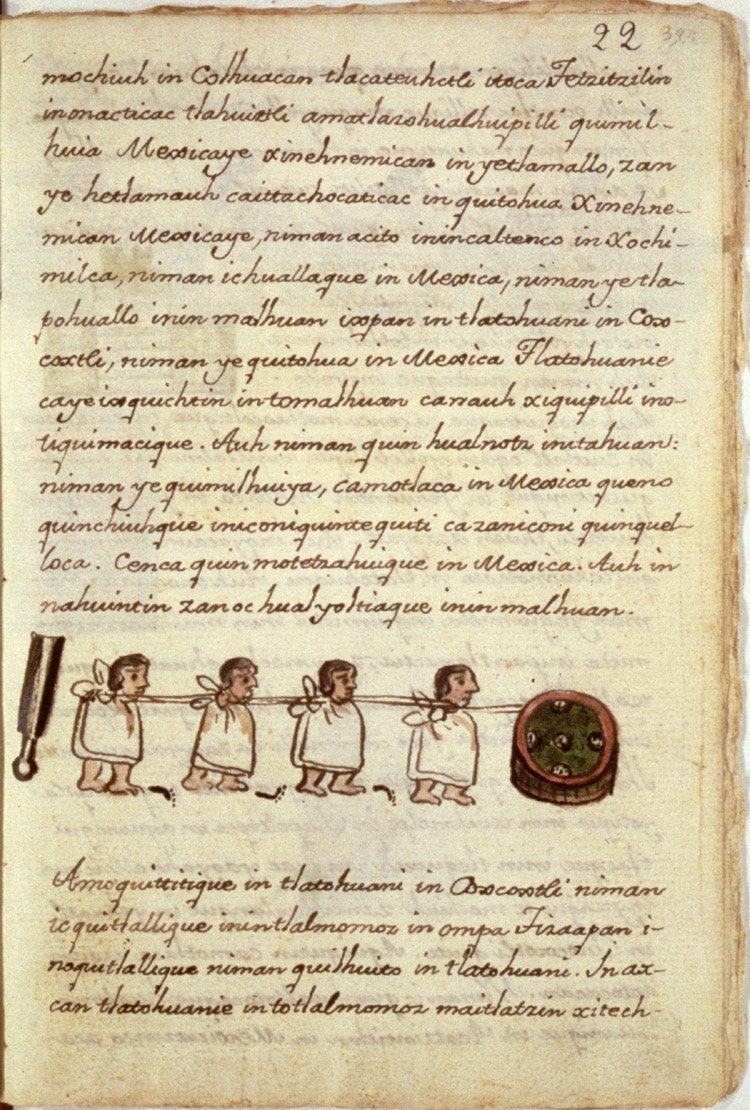 22
mochiuh in Colhuacan tlacateuhctli itoca Tetzitzilin
inonacticac tlahuiztli amatlazohualhuipilli quimil-
huia Mexicaye xinehnemican in yetlamallo, zan
ye hetlamauh caittachocaticac in quitohua Xinehne-
mican Mexicaye, niman acito inincaltenco in Xochi-
milca, niman ichuallaque in Mexica, niman ye tla-
pohuallo inin malhuan ixpan in tlatohuani in Cox-
coxtli, niman ye quitohua in Mexica Tlatohuanie
caye ixquichtin intomalhuan carrauh xiquipilli ino-
tiquimacique. Auh niman quin hualnotz initahuan:
niman ye quimilhuiya, camotlaca in Mexica queno
quinchiuhque iniconiquintequiti cazaniconi quinquel-
loca. Cenca quin motetzahuique in Mexica. Auh in
nahuintin zan oc hual yoltiaque inin malhuan.
Amoquittitique in tlatohuani in Coxcoxtli niman
ic quitlallique inintlalmomoz in ompa Tizaapan i-
noquitlallique niman quilhuito in tlatohuani. In ax-
can tlatohuanie intotlalmomoz maitlatzin xitech-